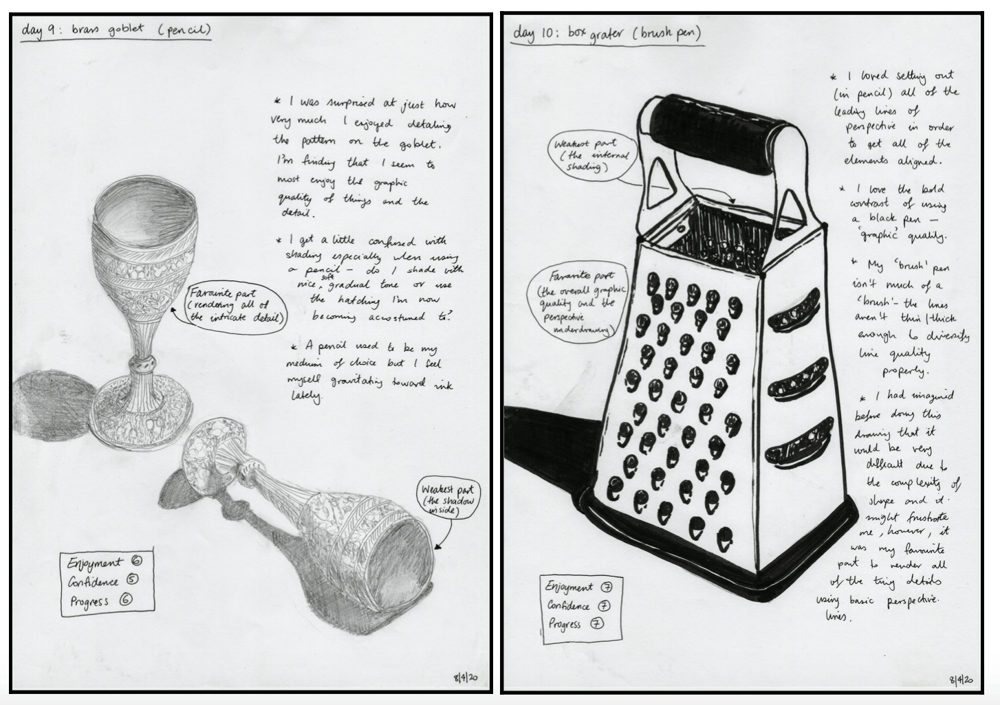 day 9: brass goblet (pencil)
* I was surprised at just how
very much I enjoyed detailing
the pattern on the goblet.
I'm finding that I seem to
most enjoy the graphic
quality of things and the
detail.
* I get a little confused with
shading especially when using
a pencil – do I shade with
nice, soft gradual tone or use
the hatching I'm now
becoming accustomed to?
* A pencil used to be my
medium of choice but I feel
myself gravitating toward ink
lately.
Favourite part
(rendering all of
the intricate detail)
Weakest part
(the shadow
inside)
Enjoyment 6
Confidence 5
Progress 6
8/4/20
day 10: box grater (brush pen)
* I loved setting out
(in pencil) all of the
leading lines of
perspective in order
to get all of the
elements aligned.
* I love the bold
contrast of using
a black pen –
'graphic' quality.
* My 'brush' pen
isn't much of a
'brush' – the lines
aren't thin/thick
enough to diversify
line quality
properly.
* I had imagined
before doing this
drawing that it
would be very
difficult due to
the complexity of
shape and it
might frustrate
me, however, it
was my favourite
part to render all
of the tiny details
using basic perspective
lines.
Weakest part
(the internal
shading)
Favourite part
(the overall graphic
quality and the
perspective
underdrawing)
Enjoyment 7
Confidence 7
Progress 7
8/4/20